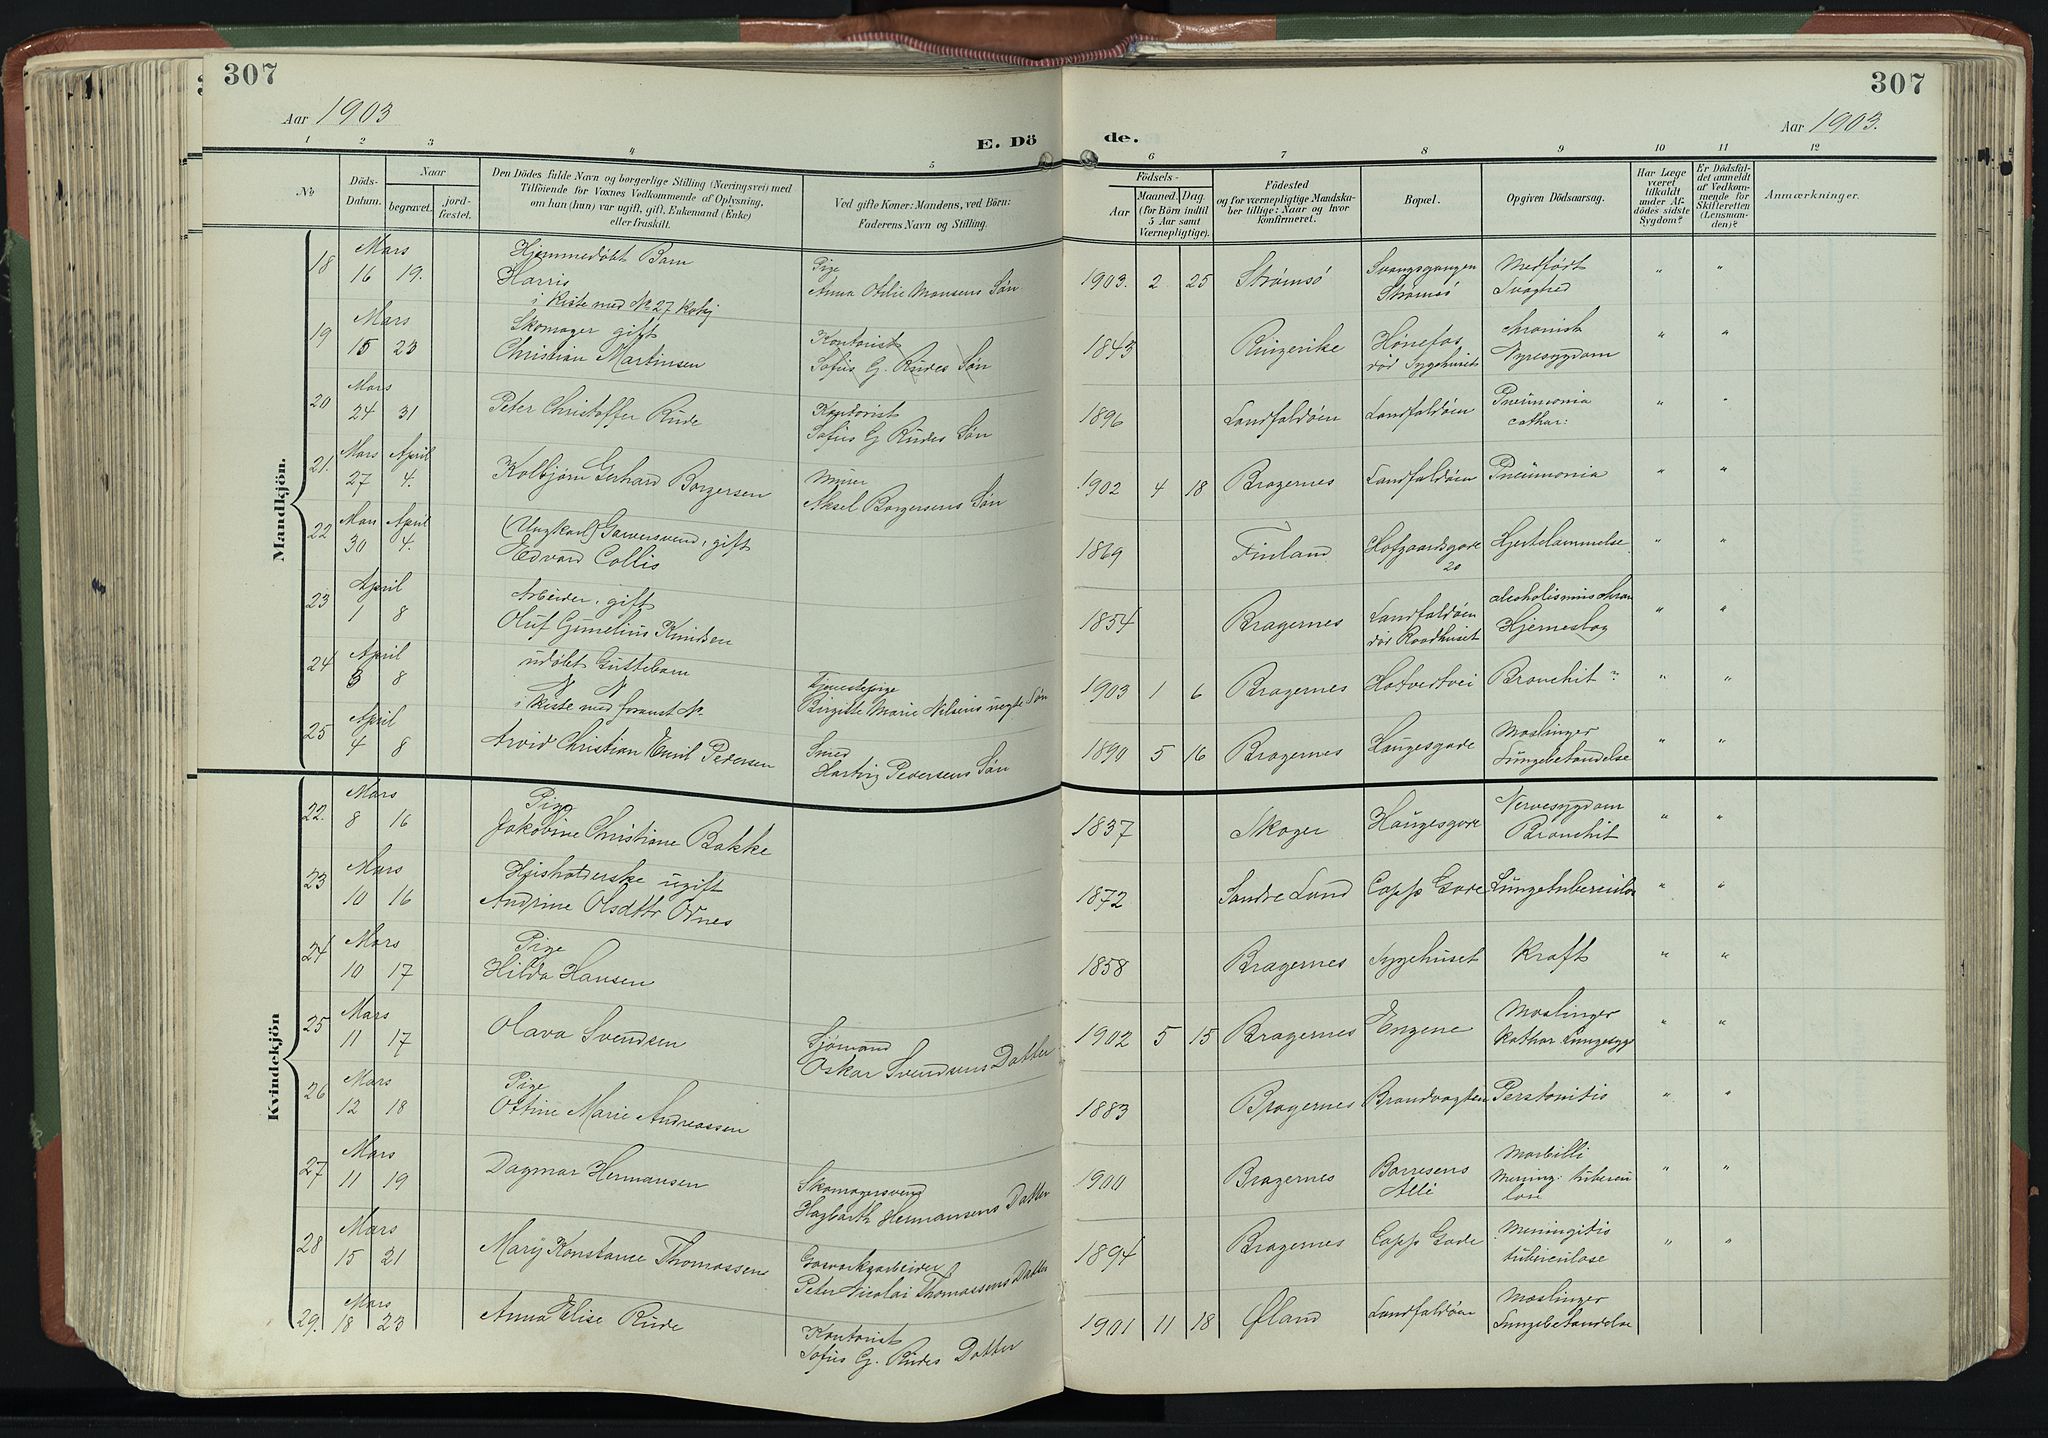 307
307
Aar 1903
Aar 1903.
E. Dö de.
1 2 3 4 5 6 7 8 9 10 11 12
No
Döds-
Datum.
Naar
begravet.
jord-
fæstet.
Den Dödes fulde Navn og borgerlige Stilling (Næringsvei) med
Tilföiende for Voxnes Vedkommende af Oplysning,
om han (hun) var ugift, gift, Enkemand (Enke)
eller fraskilt.
Ved gifte Koner: Mandens, ved Börn:
Faderens Navn og Stilling.
Födsels-
Aar
Maaned. Dag.
(for Börn indtil
5 Aar samt
Værnepligtige).
Födested
og for værnepligtige Mandska-
ber tillige: Naar og hvor
konfirmeret.
Bopæl.
Opgiven Dödsaarsag.
Har Læge
været
tilkaldt
under Af-
dödes sidste
Sygdom?
Er Dödsfal-
det anmeldt
af Vedkom-
mende for
Skifteretten
(Lensman-
den)?
Anmærkninger.
Mandkjön.
18 Mars 16 19. Hjemmedøbt Barn
Harris
i Kiste med No 27 Kvkj
Pige
Anna Otilie Monsens Søn
1903. 2 25 Strømsö
Svangsgangen
Strømsö
Medfødt
Svaghed
" "
19 Mars 15 23 Skomager gift
Christian Martinsen
Kontorist
Sofus G. Rudes Søn
1843 Ringerike
Hønefos
död Sygehuset
chronisk
Nyresygdom
" "
20 Mars 24 31 Peter Christoffer Rude
Kontorist
Sofus G Rudes Søn
1896 Landfaldøen Landfaldøen
Pneumonia
cathar:
" "
21. Mars 27 April 4. Kolbjørn Gerhard Borgersen
Murer
Aksel Borgersens Søn
1902 4 18 Bragernes Landfaldøen Pneumonia " "
22 Mars 30 April 4. (Ungkarl) Garversvend, gift
Edvard Collis
1869 Finland Hofgaardsgade
20
Hjertelammelse " "
23 April 1 8 Arbeider, gift
Oluf Gunelius Knudsen
1854 Bragernes
Landfaldøen
död Raadhuset
alcoholismus chron
Hjerneslag
" "
24 April 3 8 udøbt Guttebarn
N N
i Kiste med foranst. No
Tjenestepige
Birgitte Marie Nilsens uegte Søn
1903 1 6 Bragernes Hotvedtvei Bronchit " "
25 April 4 8 Arvid Christian Emil Pedersen
Smed
Harting Pedersens Søn
1890 5 16 Bragernes Haugesgade
Mæslinger
Lungebetændelse
" "
Kvindekjön
22. Mars 8 16 Pige
Jakobine Christiane Bakke
1837 Skoger Haugesgade
Nervesygdom
Bronchit
" "
23 Mars 10 16 Husholderske ugift
Andrine Olsdtr Odnes
1872 Søndre Land Capp. Gade Lungetuberculos " "
24 Mars 10 17 Pige
Hilda Hansen
1858 Bragernes Sygehuset Kræft " "
25 Mars 11 17 Olava Svendsen
Sjømand
Oskar Svendsens Datter
1902 5 15 Bragernes Engene
Mæslinger
Kathar Lungesyge
" "
26 Mars 12 18 Pige
Otine Marie Andreassen
1883 Bragernes Brandvagten Peritonitis " "
27 Mars 11 19 Dagmar Hermansen
Skomagersvend
Hagbarth Hermansens Datter
1900 Bragernes
Børresens
Allé
Morbilli
Mening: tubercu
lose
" "
28 Mars 15 21 Mary Konstance Thomassen
Gasværksarbeider
Peter Nicolai Thomassens Datter
1894 Bragernes Capp. Gade
Meningitis
tuberculose
" "
29. Mars 18 23 Anna Elise Rude
Kontorist
Sofus G. Rudes Datter
1901 11 18 Øland Landfaldøen
Mæslinger
Lungebetændelse